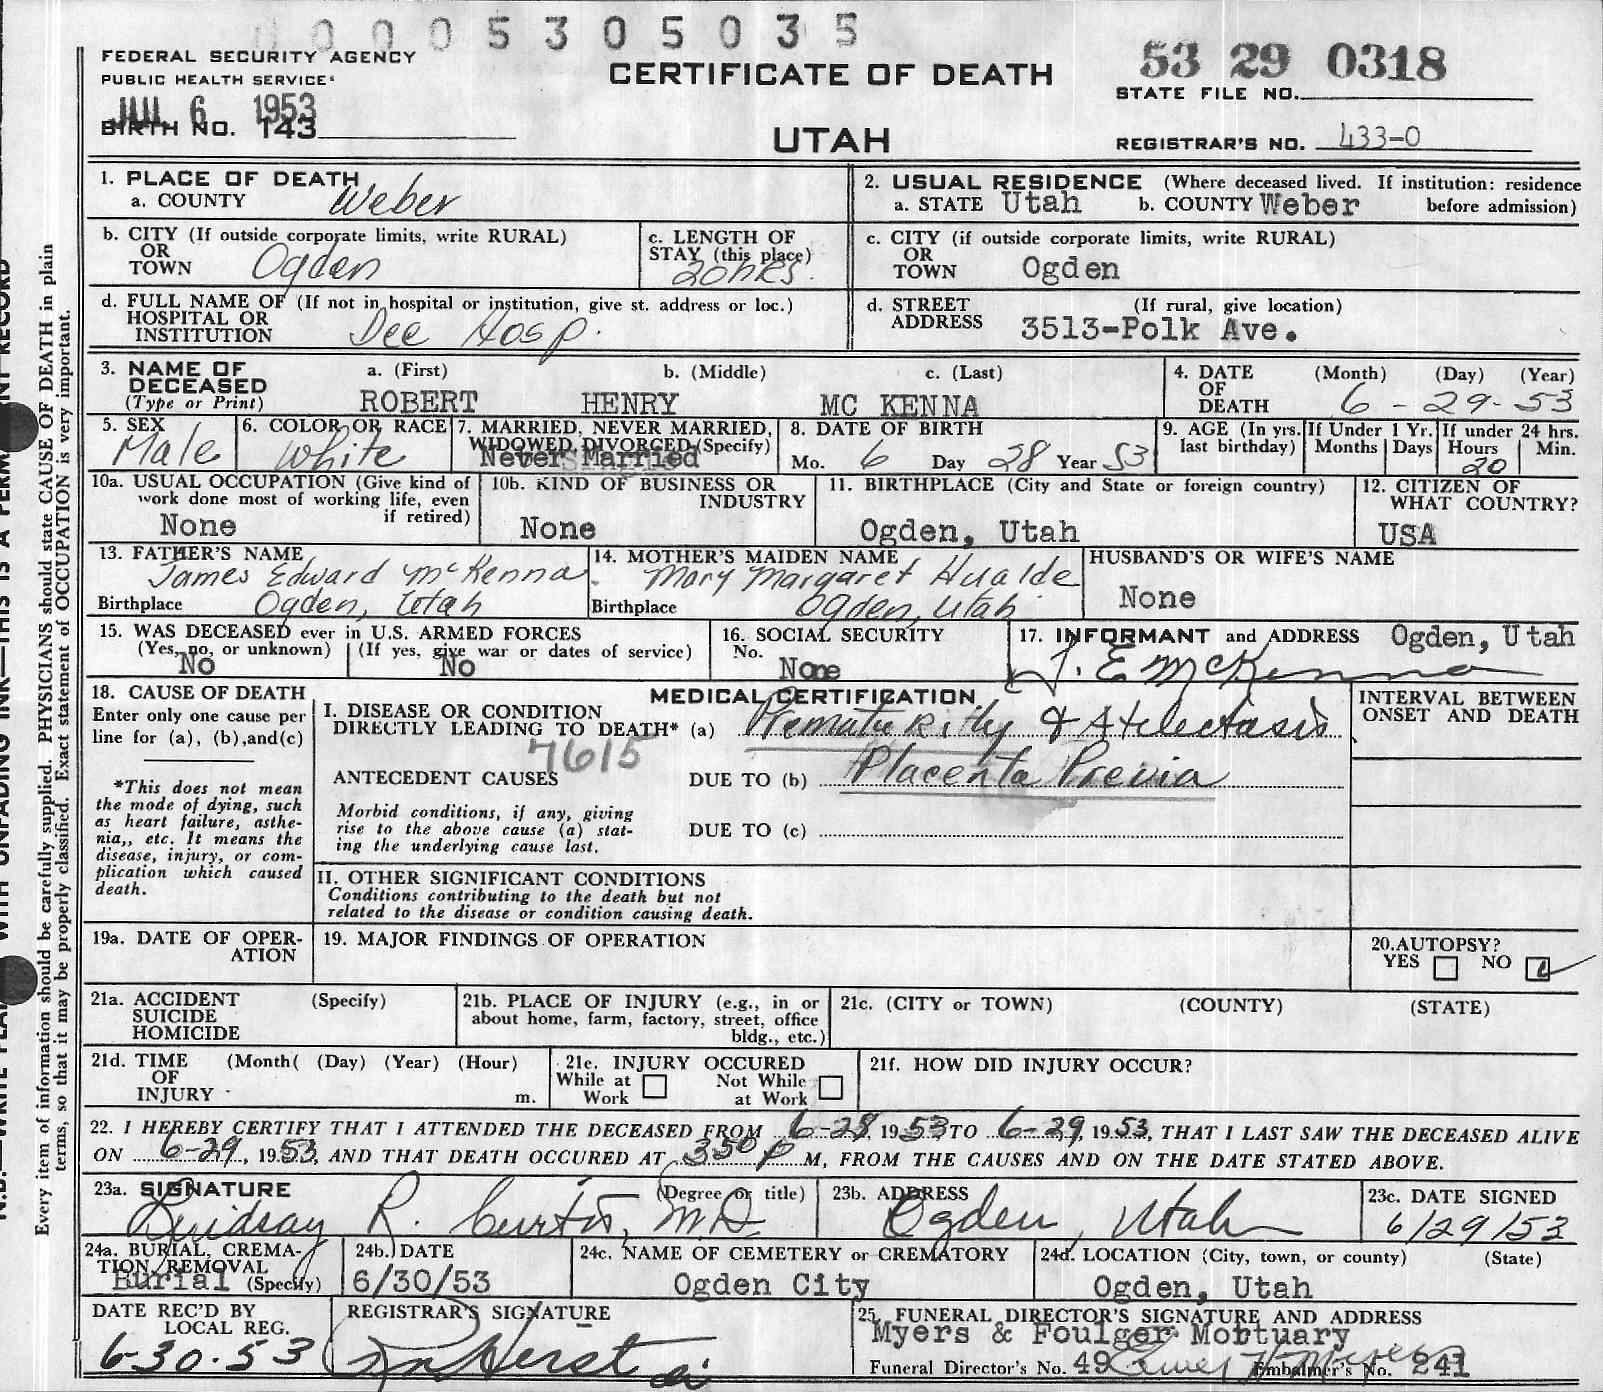 0 0 0 5 3 0 5 0 3 5
FEDERAL SECURITY AGENCY
PUBLIC HEALTH SERVICE
CERTIFICATE OF DEATH
53 29 0318
STATE FILE NO.
JUL 6 1953
BIRTH NO. 143
UTAH
REGISTRAR'S NO. 433-0
1. PLACE OF DEATH
a. COUNTY Weber
2. USUAL RESIDENCE (Where deceased lived. If institution: residence before admission)
a. STATE Utah b. COUNTY Weber
b. CITY (If outside corporate limits, write RURAL)
OR
TOWN Ogden
c. LENGTH OF
STAY (this place)
20 hrs.
c. CITY (if outside corporate limits, write RURAL)
OR
TOWN Ogden
d. FULL NAME OF (If not in hospital or institution, give st. address or loc.)
HOSPITAL OR
INSTITUTION Dee Hosp.
d. STREET (If rural, give location)
ADDRESS 3513-Polk Ave.
3. NAME OF
DECEASED
(Type or Print)
a. (First) b. (Middle) c. (Last)
ROBERT HENRY MC KENNA
4. DATE (Month) (Day) (Year)
OF
DEATH 6 - 29 - 53
5. SEX
Male
6. COLOR OR RACE
White
7. MARRIED, NEVER MARRIED,
WIDOWED, DIVORCED (Specify)
Never Married
8. DATE OF BIRTH
Mo. 6 Day 28 Year 53
9. AGE (In yrs. last birthday)
If Under 1 Yr.
Months Days
If under 24 hrs.
Hours Min.
20
10a. USUAL OCCUPATION (Give kind of
work done most of working life, even
if retired)
None
10b. KIND OF BUSINESS OR
INDUSTRY
None
11. BIRTHPLACE (City and State or foreign country)
Ogden, Utah
12. CITIZEN OF
WHAT COUNTRY?
USA
13. FATHER'S NAME
James Edward McKenna
Birthplace Ogden, Utah
14. MOTHER'S MAIDEN NAME
Mary Margaret Hualde
Birthplace Ogden, Utah
HUSBAND'S OR WIFE'S NAME
None
15. WAS DECEASED ever in U.S. ARMED FORCES
(Yes, no, or unknown) (If yes, give war or dates of service)
No No
16. SOCIAL SECURITY
No.
None
17. INFORMANT and ADDRESS Ogden, Utah
J. E McKenna
18. CAUSE OF DEATH
Enter only one cause per
line for (a), (b),and(c)
*This does not mean
the mode of dying, such
as heart failure, asthe-
nia,, etc. It means the
disease, injury, or com-
plication which caused
death.
MEDICAL CERTIFICATION
I. DISEASE OR CONDITION
DIRECTLY LEADING TO DEATH* (a) Prematurity & Atelectasis
7615
ANTECEDENT CAUSES DUE TO (b) Placenta Previa
Morbid conditions, if any, giving
rise to the above cause (a) stat-
ing the underlying cause last.
DUE TO (c)
INTERVAL BETWEEN
ONSET AND DEATH
II. OTHER SIGNIFICANT CONDITIONS
Conditions contributing to the death but not
related to the disease or condition causing death.
19a. DATE OF OPER-
ATION
19. MAJOR FINDINGS OF OPERATION
20.AUTOPSY?
YES NO
21a. ACCIDENT (Specify)
SUICIDE
HOMICIDE
21b. PLACE OF INJURY (e.g., in or
about home, farm, factory, street, office
bldg., etc.)
21c. (CITY or TOWN) (COUNTY) (STATE)
21d. TIME (Month( (Day) (Year) (Hour)
OF
INJURY m.
21e. INJURY OCCURED
While at Work
Not While at Work
21f. HOW DID INJURY OCCUR?
22. I HEREBY CERTIFY THAT I ATTENDED THE DECEASED FROM 6-28, 1953 TO 6-29, 1953, THAT I LAST SAW THE DECEASED ALIVE
ON 6-29, 1953, AND THAT DEATH OCCURED AT 350 P M, FROM THE CAUSES AND ON THE DATE STATED ABOVE.
23a. SIGNATURE (Degree or title)
Lindsay R. Curtis, M.D.
23b. ADDRESS
Ogden, Utah
23c. DATE SIGNED
6/29/53
24a. BURIAL, CREMA-
TION, REMOVAL
Burial (Specify)
24b. DATE
6/30/53
24c. NAME OF CEMETERY or CREMATORY
Ogden City
24d. LOCATION (City, town, or county) (State)
Ogden, Utah
DATE REC'D BY
LOCAL REG.
6-30-53
REGISTRAR'S SIGNATURE
25. FUNERAL DIRECTOR'S SIGNATURE AND ADDRESS
Myers & Foulger Mortuary
Funeral Director's No. 49 Embalmer's No. 241
Every item of information should be carefully supplied. PHYSICIANS should state CAUSE OF DEATH in plain
terms, so that it may be properly classified. Exact statement of OCCUPATION is very important.